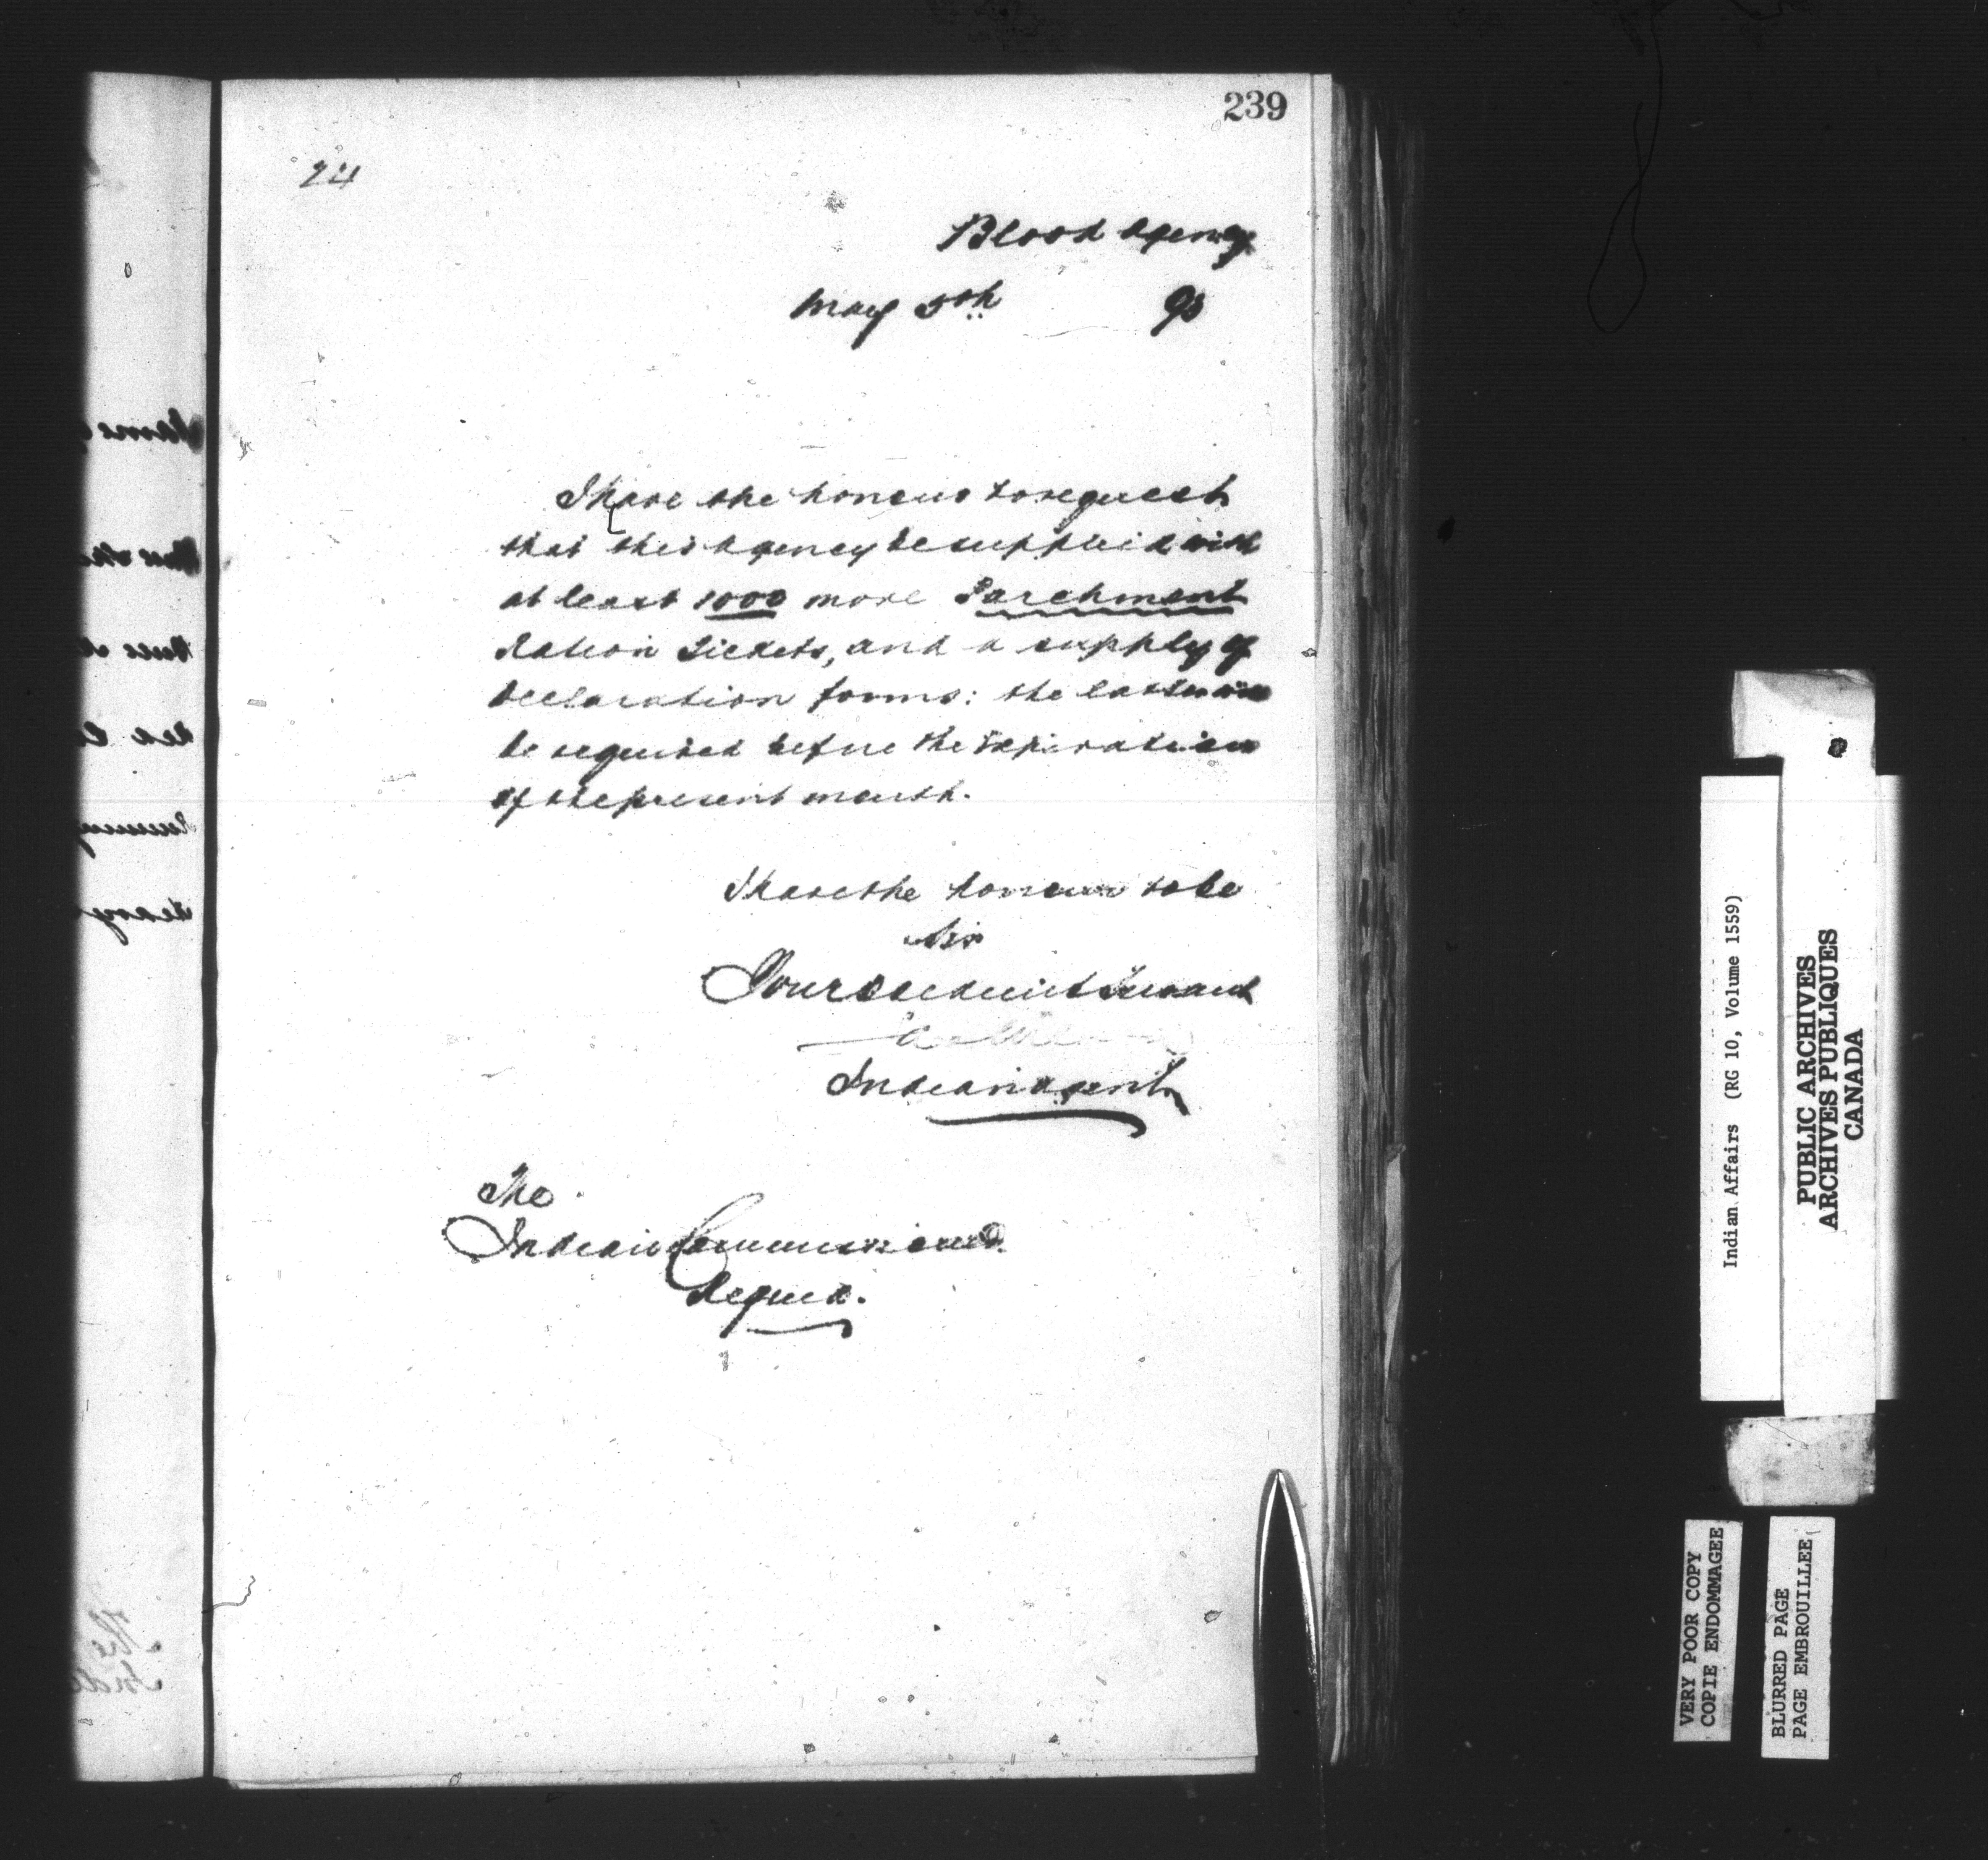 239
24
Blood Agency
May 5th 93
I have the honour to request
that this Agency be supplied with
at least 1000 more Parchment
Ration Tickets, and a supply of
declaration forms: the latter will
be required before the expiration
of the present month.
I have the honour to be
Sir
Your obedient Servant
Indian Agent
The
Indian Commissioner
Regina.
Indian Affairs (RG 10, Volume 1559)
PUBLIC ARCHIVES
ARCHIVES PUBLIQUES
CANADA
VERY POOR COPY
COPIE ENDOMMAGEE
BLURRED PAGE
PAGE EMBROUILLEE